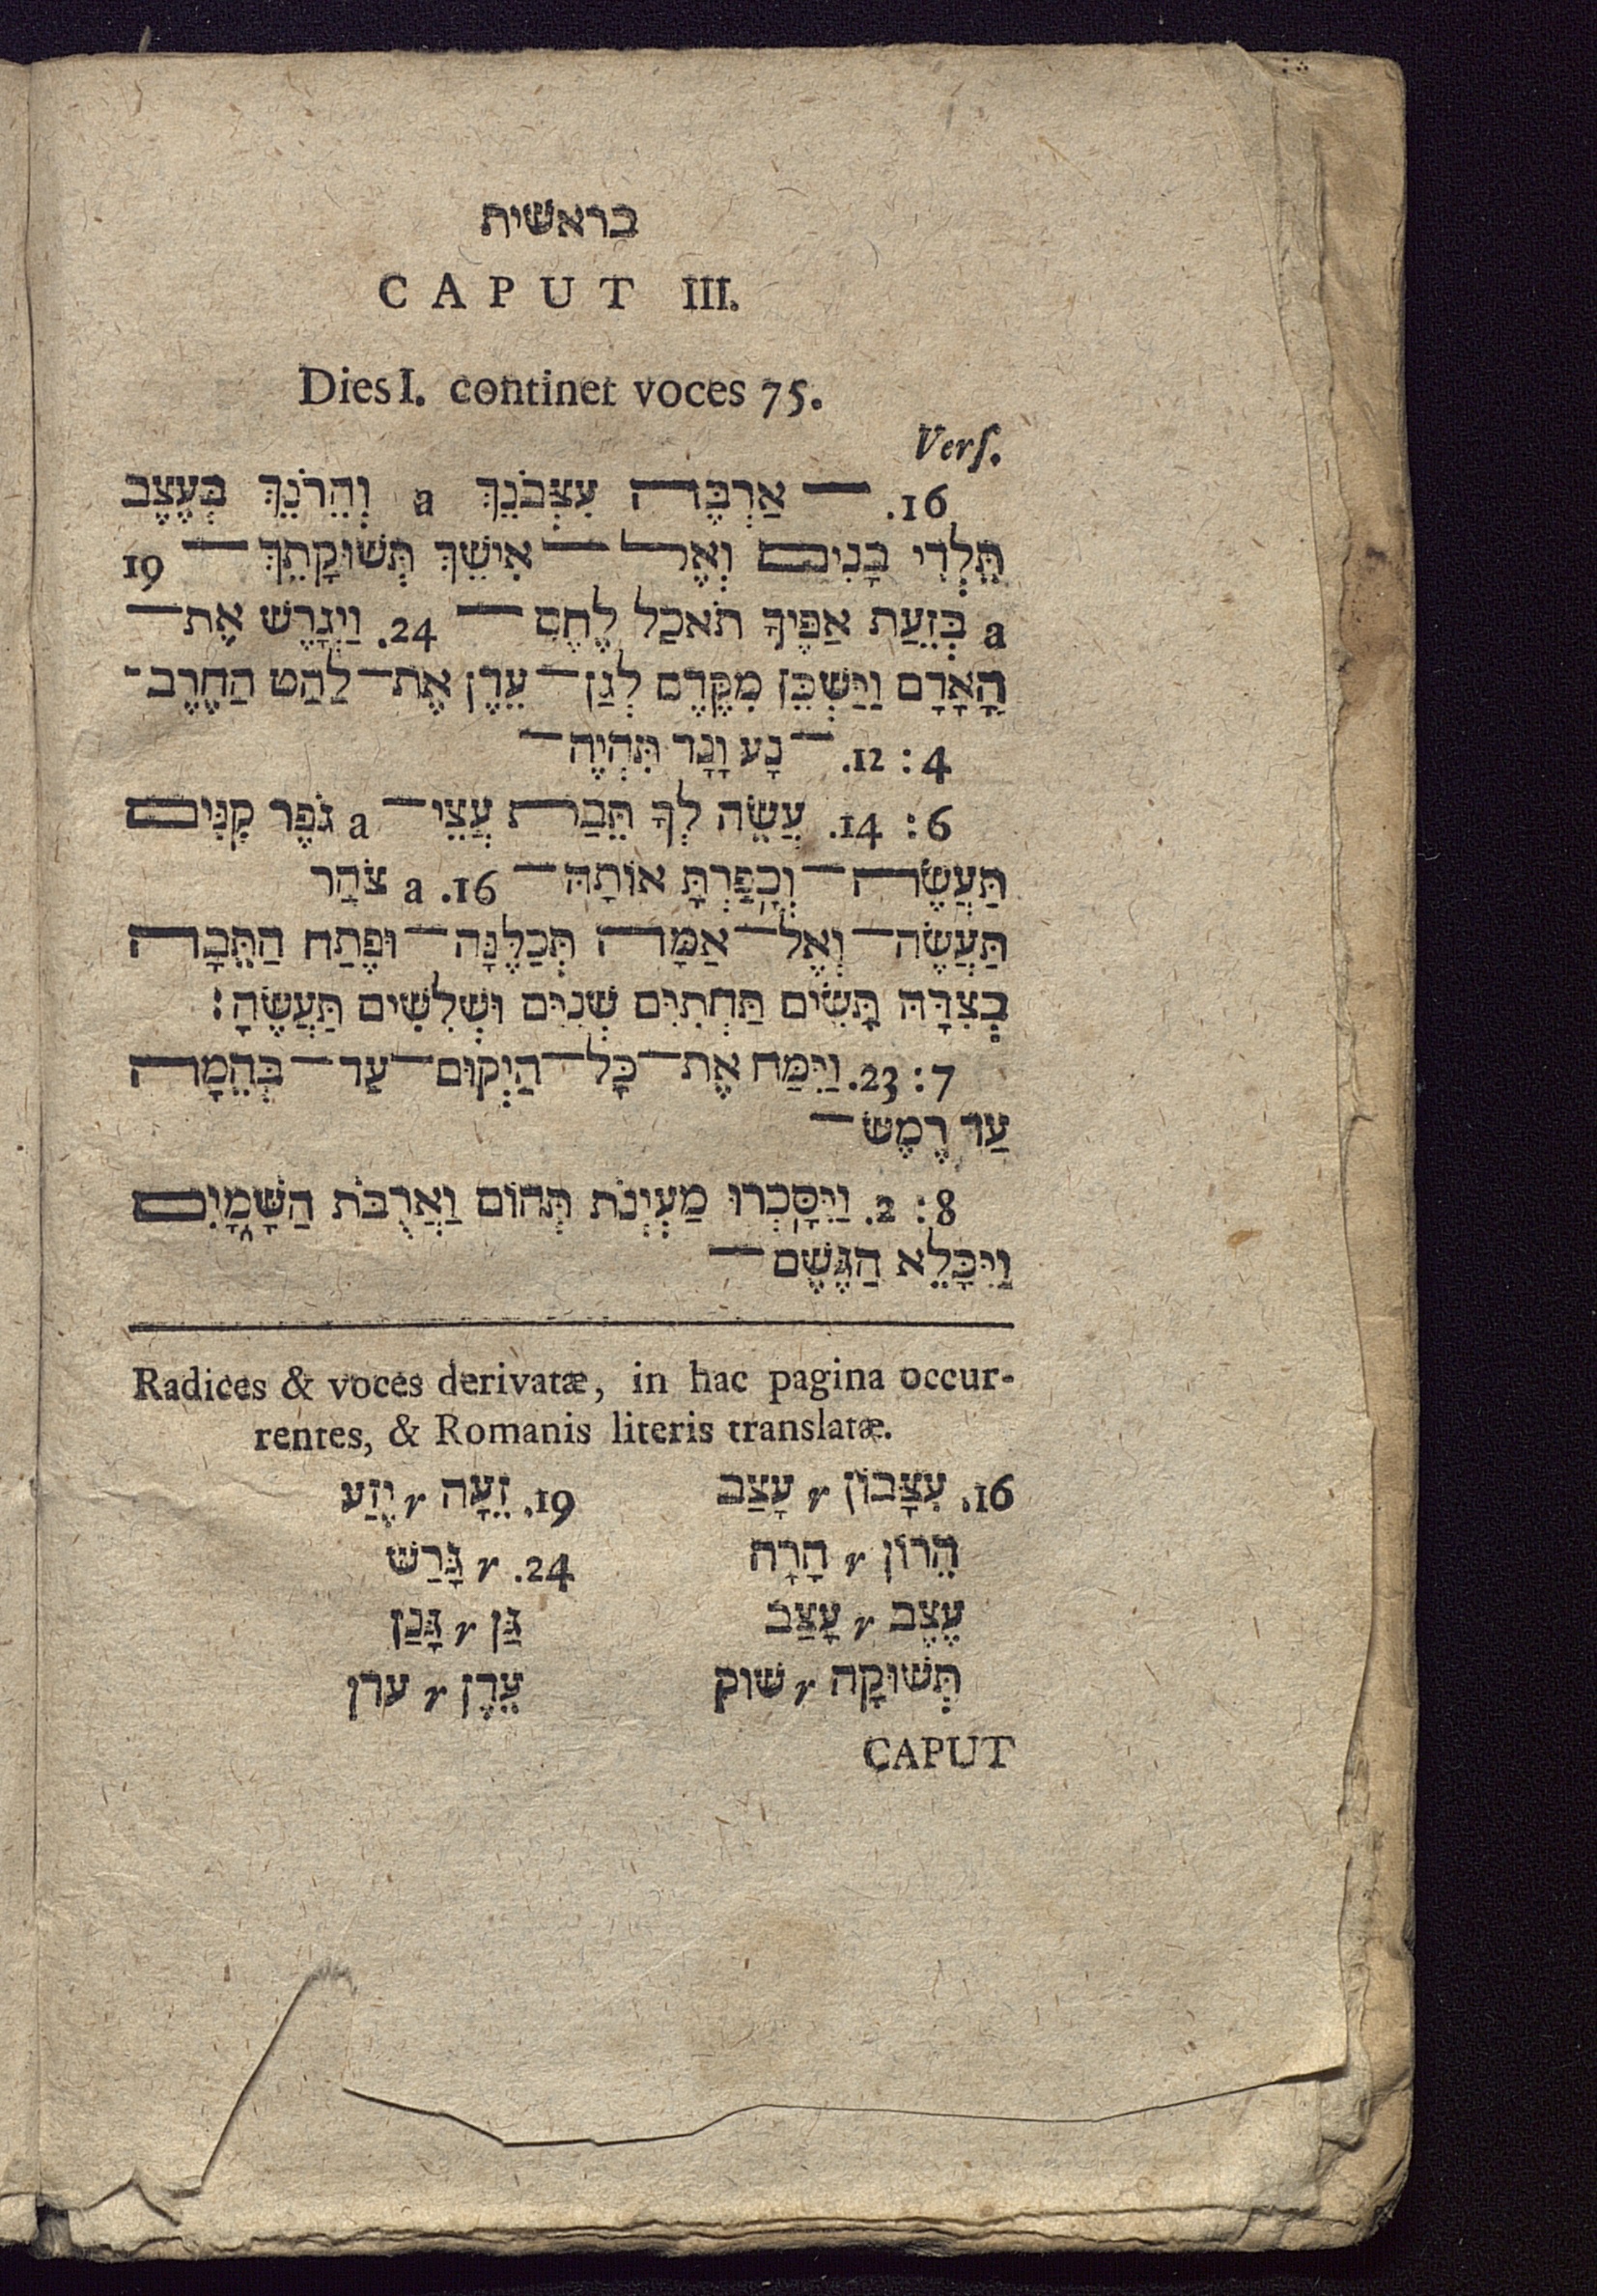 בראשית
CAPUT III.
Dies I. continet voces 75.
Vers.
16. — אַרְבֶּה עִצְּבֹנֵךְ a וְהֵרֹנֵךְ בְּעֶצֶב
תֵּלְדִי בָנִים וְאֶל — אִישֵׁךְ תְּשׁוּקָתֵךְ — 19
a בְּזֵעַת אַפֶּיךָ תֹּאכַל לֶחֶם — 24. וַיְגָרֶשׁ אֶת—
הָאָדָם וַיַּשְׁכֵּן מִקֶּדֶם לְגַן—עֵדֶן אֶת—לַהַט הַחֶרֶב־
4 : 12. — נָע וָנָד תִּהְיֶה—
6 : 14. עֲשֵׂה לְךָ תֵּבַת עֲצֵי— a גֹפֶר קִנִּים
תַּעֲשֶׂה — וְכָפַרְתָּ אוֹתָהּ — 16. a צֹהַר
תַּעֲשֶׂה—וְאֶל—אַמָּה תְּכַלֶּנָּה—וּפֶתַח הַתֵּבָה
בְּצִדָּהּ תָּשִׂים תַּחְתִּיִּם שְׁנִיִּם וּשְׁלִשִׁים תַּעֲשֶׂהָ:
7 : 23. וַיִּמַח אֶת—כָּל—הַיְקוּם—עַד—בְּהֵמָה
עַד רֶמֶשׂ—
8 : 2. וַיִּסָּכְרוּ מַעְיְנֹת תְּהוֹם וַאֲרֻבֹּת הַשָּׁמָיִם
וַיִּכָּלֵא הַגֶּשֶׁם—
Radices & voces derivatæ, in hac pagina occur-
rentes, & Romanis literis translatæ.
16. עִצָּבוֹן r עָצַב
הֵרוֹן r הָרָה
עֶצֶב r עָצַב
תְּשׁוּקָה r שׁוּק
19. זֵעָה r יֶזַע
24. r גָּרַשׁ
גַּן r גָּנַן
עֵדֶן r עדן
CAPUT